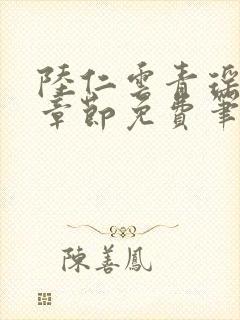 陸仁雲青瑤
章節免費筆
陳善鳳